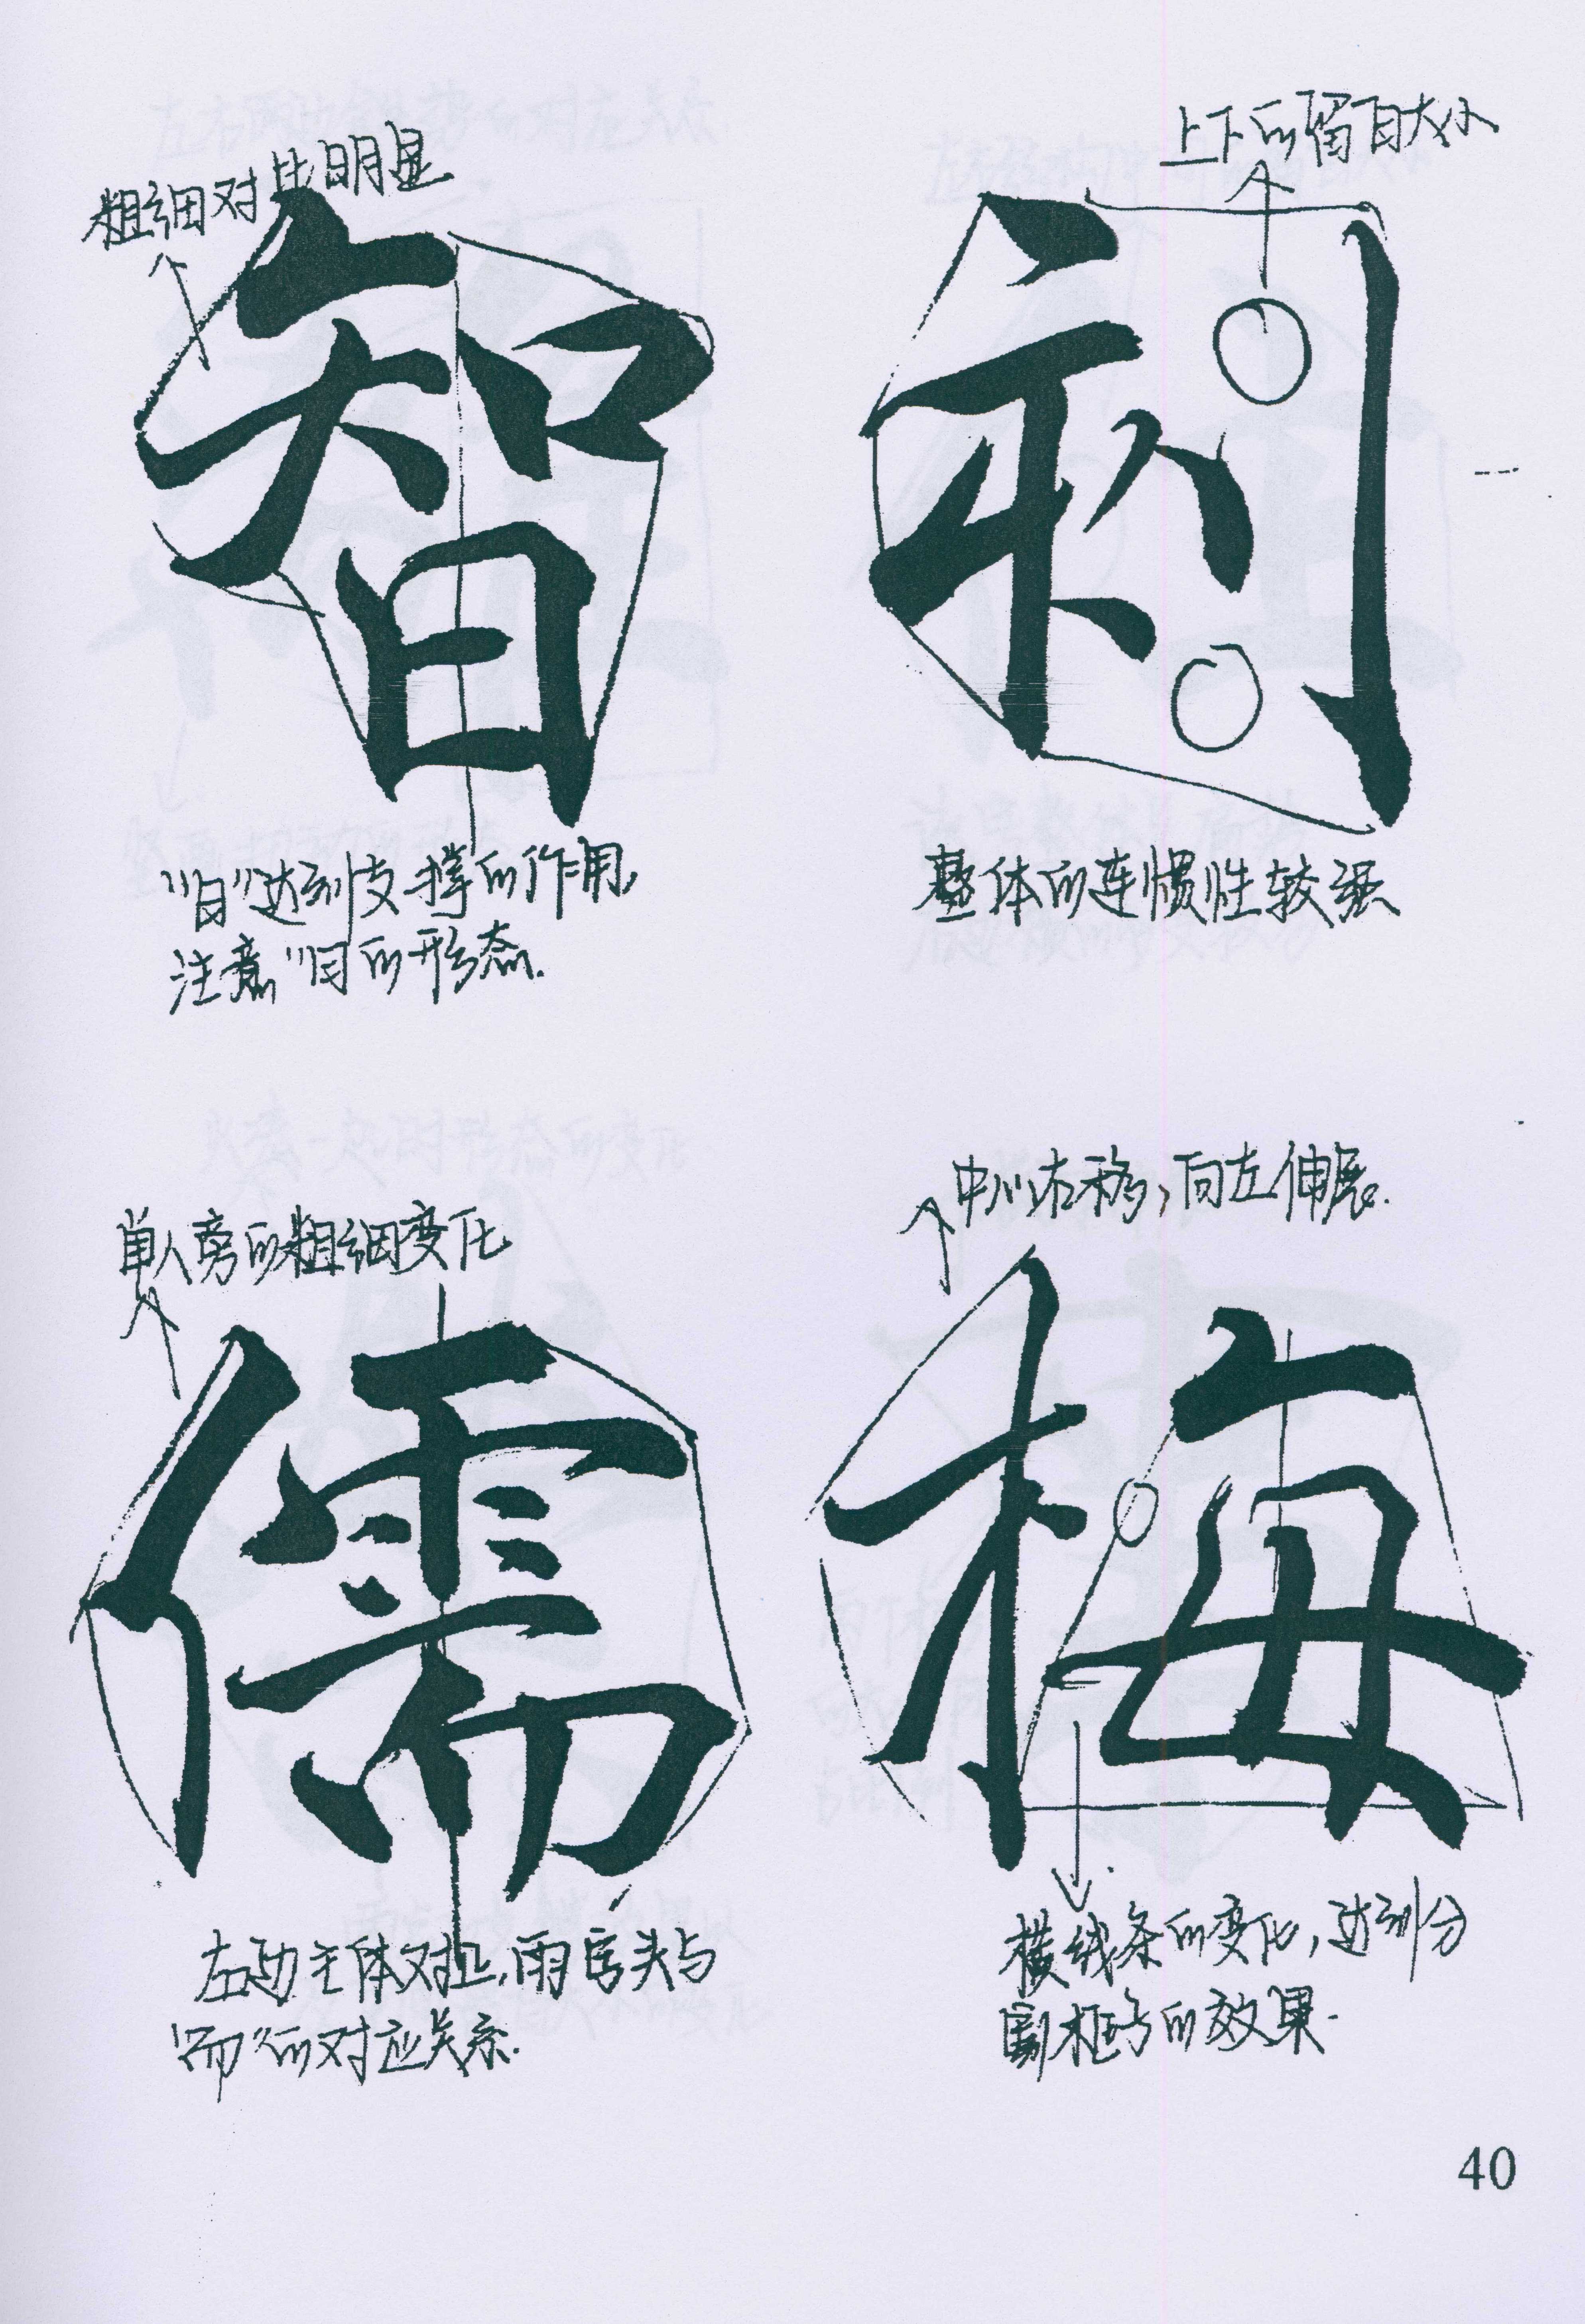 粗细对比明显
智
"日"达到支撑的作用,
注意"日的形态.
上下的留白大小
利
整体的连惯性较强
单人旁的粗细变化
儒
左边主体对正,雨字头与
"而"的对应关系.
中心右移,向左伸展.
梅
横线条的变化,达到分
割框与的效果.
40